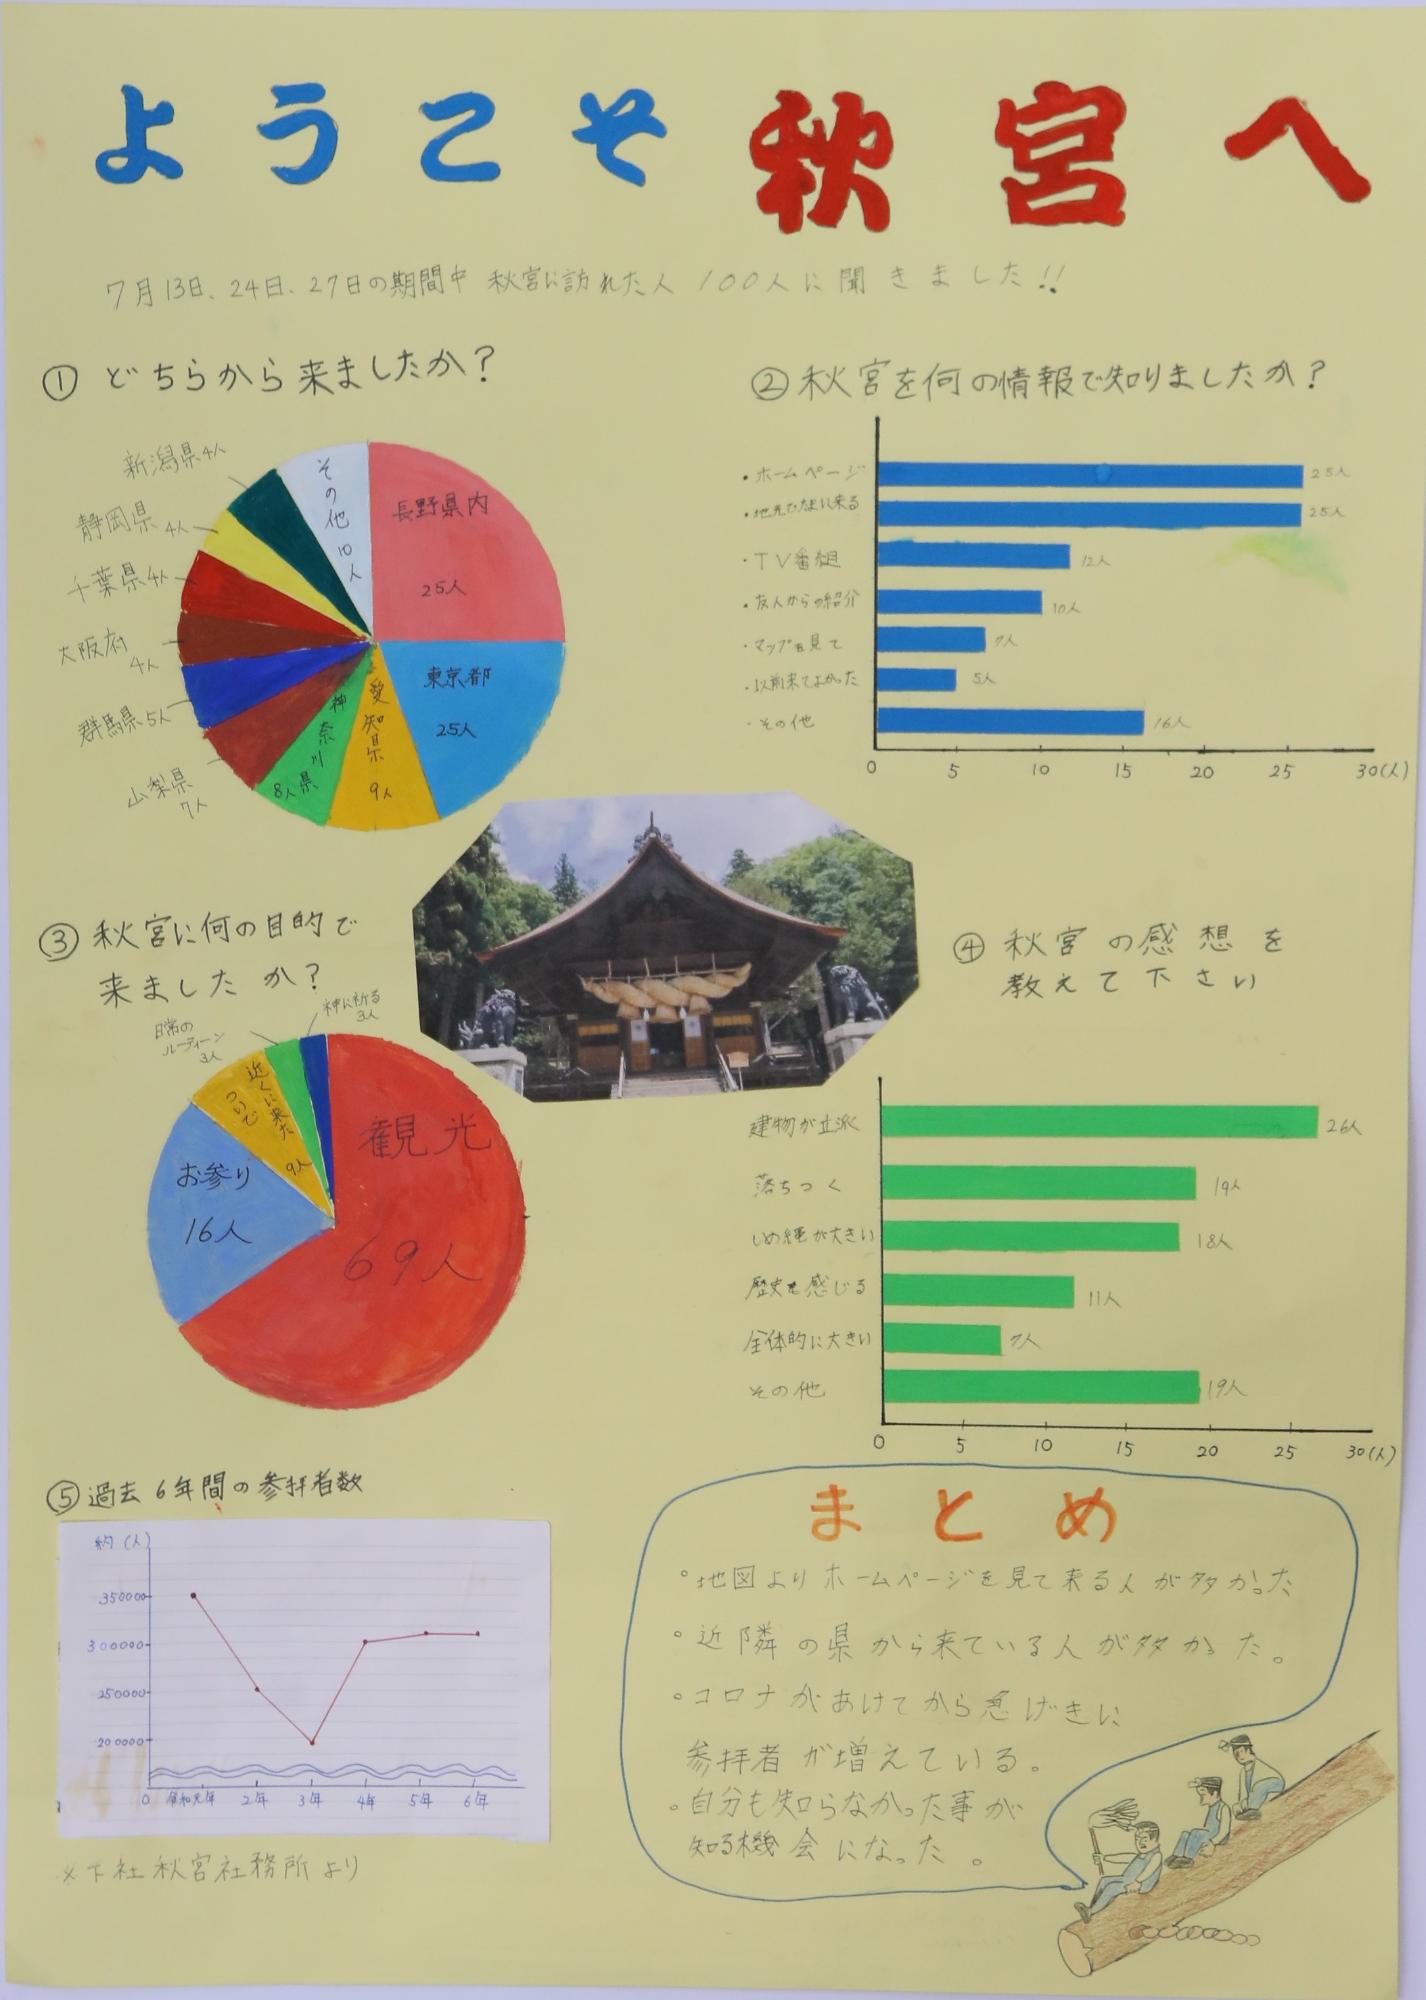 ようこそ秋宮へ
7月13日、24日、27日の期間中 秋宮に訪れた人 100人に聞きました!!
① どちらから来ましたか?
新潟県4人
静岡県4人
千葉県4人
大阪府4人
群馬県5人
山梨県7人
その他10人
長野県内
25人
東京都
25人
愛知県 9人
神奈川県 8人
② 秋宮を何の情報で知りましたか?
・ホームページ 25人
25人
・TV番組 12人
・友人からの紹介 10人
・マップを見て 7人
・以前来てよかった 5人
・その他 16人
0 5 10 15 20 25 30(人)
③ 秋宮に何の目的で
来ましたか?
日常の
ルーティーン
3人
神に祈る
3人
近くに来た
ついで
9人
お参り
16人
観光
69人
④ 秋宮の感想を
教えて下さい
建物が立派 26人
落ちつく 19人
しめ縄が大きい 18人
歴史を感じる 11人
全体的に大きい 7人
その他 19人
0 5 10 15 20 25 30(人)
⑤ 過去6年間の参拝者数
約(人)
350000
300000
250000
200000
0 令和元年 2年 3年 4年 5年 6年
※下社秋宮社務所より
まとめ
◦地図よりホームページを見て来る人が多かった
◦近隣の県から来ている人が多かった。
◦コロナがあけてから急げきに
参拝者が増えている。
◦自分も知らなかった事が
知る機会になった。